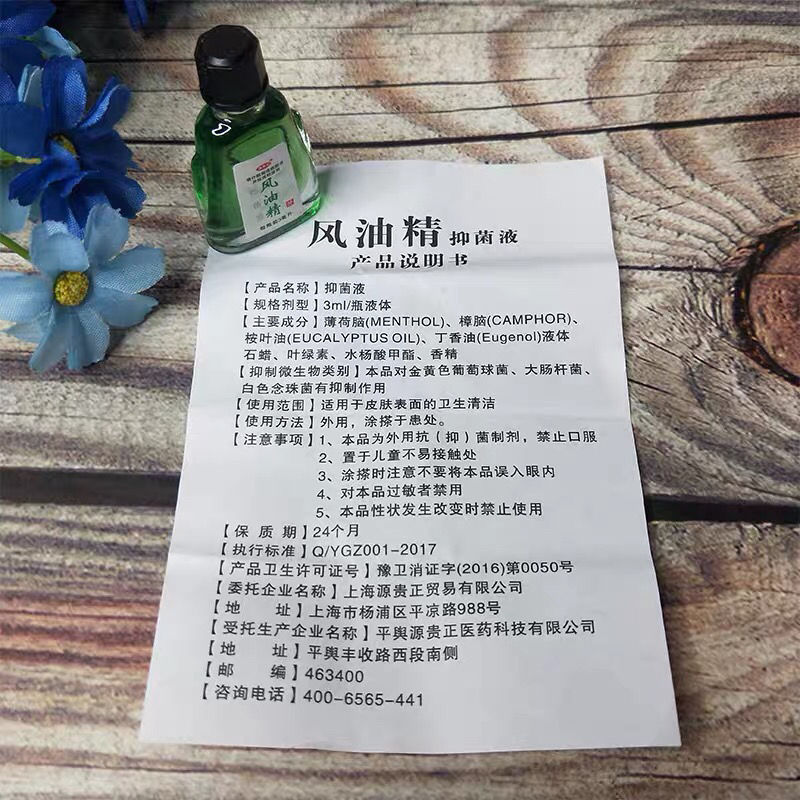 风油精
风油精 抑菌液
产品说明书
【产品名称】抑菌液
【规格剂型】3ml/瓶液体
【主要成分】薄荷脑(MENTHOL)、樟脑(CAMPHOR)、
桉叶油(EUCALYPTUS OIL)、丁香油(Eugenol)液体
石蜡、叶绿素、水杨酸甲酯、香精
【抑制微生物类别】本品对金黄色葡萄球菌、大肠杆菌、
白色念珠菌有抑制作用
【使用范围】适用于皮肤表面的卫生清洁
【使用方法】外用，涂搽于患处。
【注意事项】1、本品为外用抗（抑）菌制剂，禁止口服
2、置于儿童不易接触处
3、涂搽时注意不要将本品误入眼内
4、对本品过敏者禁用
5、本品性状发生改变时禁止使用
【保 质 期】24个月
【执行标准】Q/YGZ001-2017
【产品卫生许可证号】豫卫消证字(2016)第0050号
【委托企业名称】上海源贵正贸易有限公司
【地 址】上海市杨浦区平凉路988号
【受托生产企业名称】平舆源贵正医药科技有限公司
【地 址】平舆丰收路西段南侧
【邮 编】463400
【咨询电话】400-6565-441